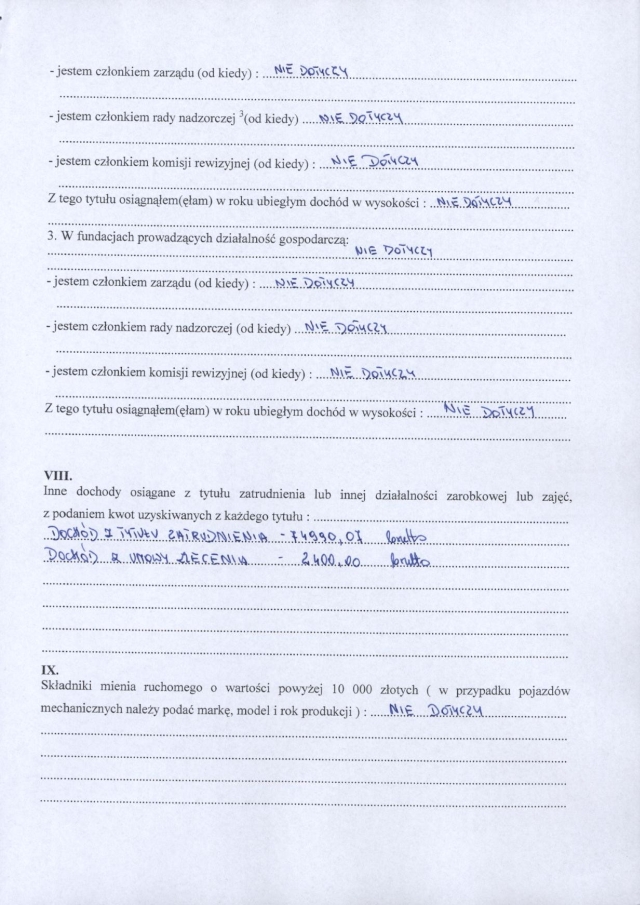 - jestem członkiem zarządu (od kiedy) : NIE DOTYCZY
- jestem członkiem rady nadzorczej ³(od kiedy) NIE DOTYCZY
- jestem członkiem komisji rewizyjnej (od kiedy) : NIE DOTYCZY
Z tego tytułu osiągnąłem(ęłam) w roku ubiegłym dochód w wysokości : NIE DOTYCZY
3. W fundacjach prowadzących działalność gospodarczą:
NIE DOTYCZY
- jestem członkiem zarządu (od kiedy) : NIE DOTYCZY
- jestem członkiem rady nadzorczej (od kiedy) NIE DOTYCZY
- jestem członkiem komisji rewizyjnej (od kiedy) : NIE DOTYCZY
Z tego tytułu osiągnąłem(ęłam) w roku ubiegłym dochód w wysokości : NIE DOTYCZY
VIII.
Inne dochody osiągane z tytułu zatrudnienia lub innej działalności zarobkowej lub zajęć,
z podaniem kwot uzyskiwanych z każdego tytułu :
DOCHÓD Z TYTUŁU ZATRUDNIENIA - 74990,07 brutto
DOCHÓD Z UMOWY ZLECENIA - 2400,00 brutto
IX.
Składniki mienia ruchomego o wartości powyżej 10 000 złotych ( w przypadku pojazdów
mechanicznych należy podać markę, model i rok produkcji ) : NIE DOTYCZY